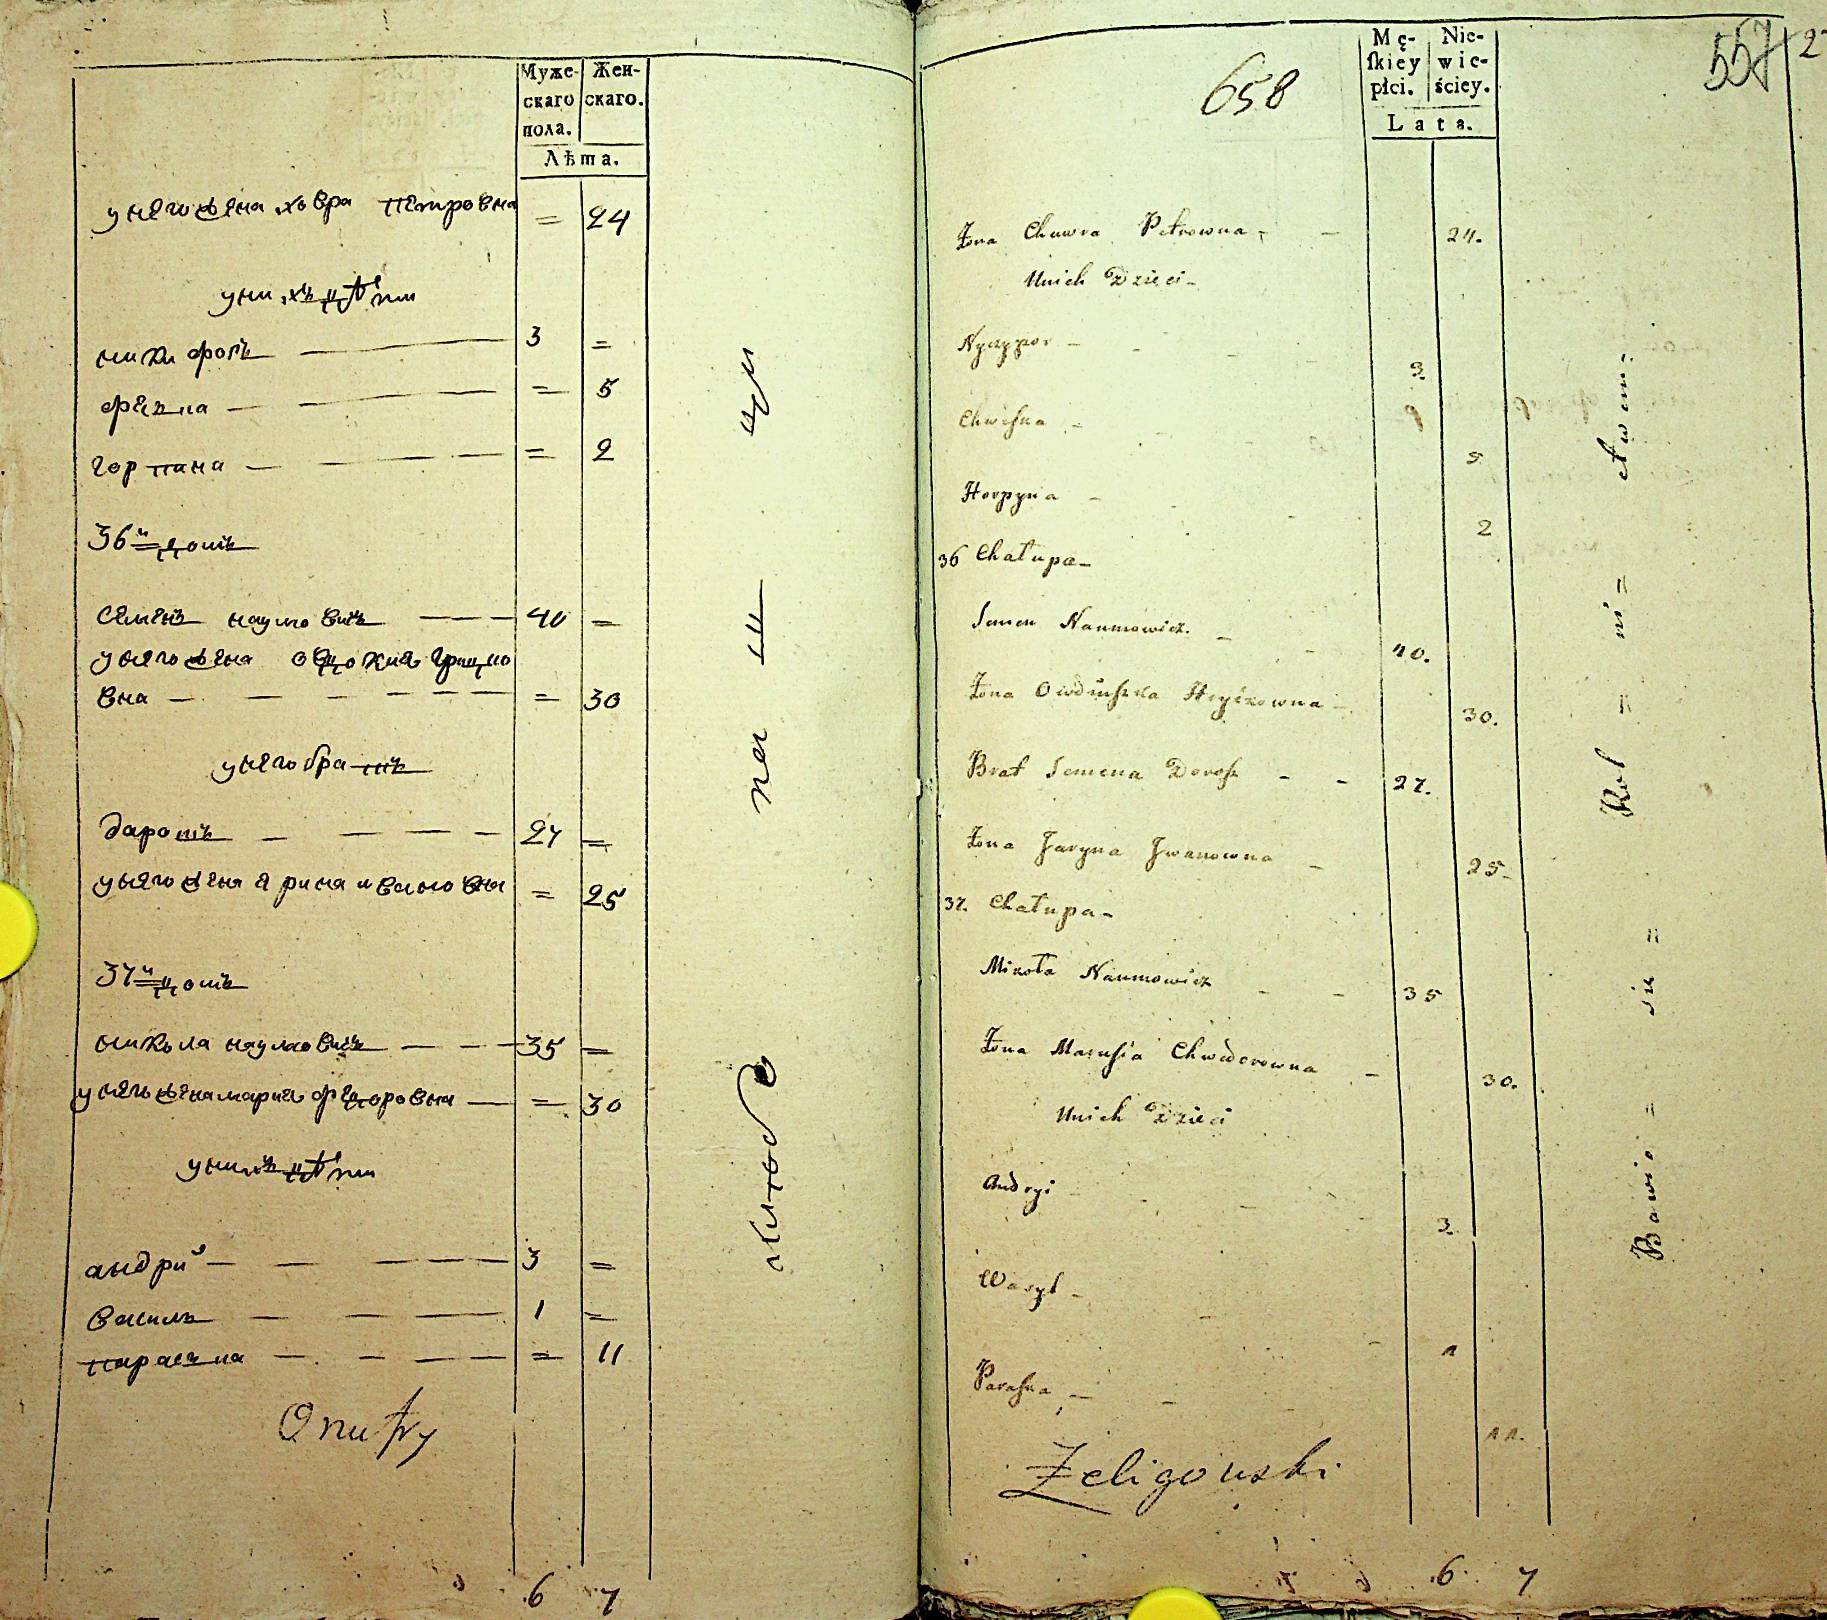 Муже-
скаго
пола.
Жен-
скаго.
Лѣта.
у него жена ховра петровна = 24
у нихъ дѣти
никифоръ 3 =
фекла = 5
горпина = 2
36й домъ
семенъ наумовичъ 40 =
у него жена овдокия грицко
вна = 30
у него братъ
дарошъ 27 =
у него жена ярина ивановна = 25
37й домъ
микола наумовичъ 35 =
у него жена мария федоровна = 30
у нихъ дѣти
андрий 3 =
василь 1 =
параска = 11
Onufry
6 7
658
557
2
Mę-
skiey
płci.
Nie-
wie-
ściey.
Lata.
Żona Chuwra Petrowna 24.
Unich Dzieci
Nyczypor 3.
Chwiska 5
Horpyna 2
36 Chałupa
Semen Naumowicz 40.
Żona Owdiuszka Hryckowna 30.
Brat Semena Dorosz 27.
Żona Jaryna Jwanowna 25
37. Chałupa
Mikoła Naumowicz 35
Żona Marusia Chwedorowna 30.
Unich Dzieci
Andryi 3
Wasyl 1
Paraska 11.
Żeligowski
6 7